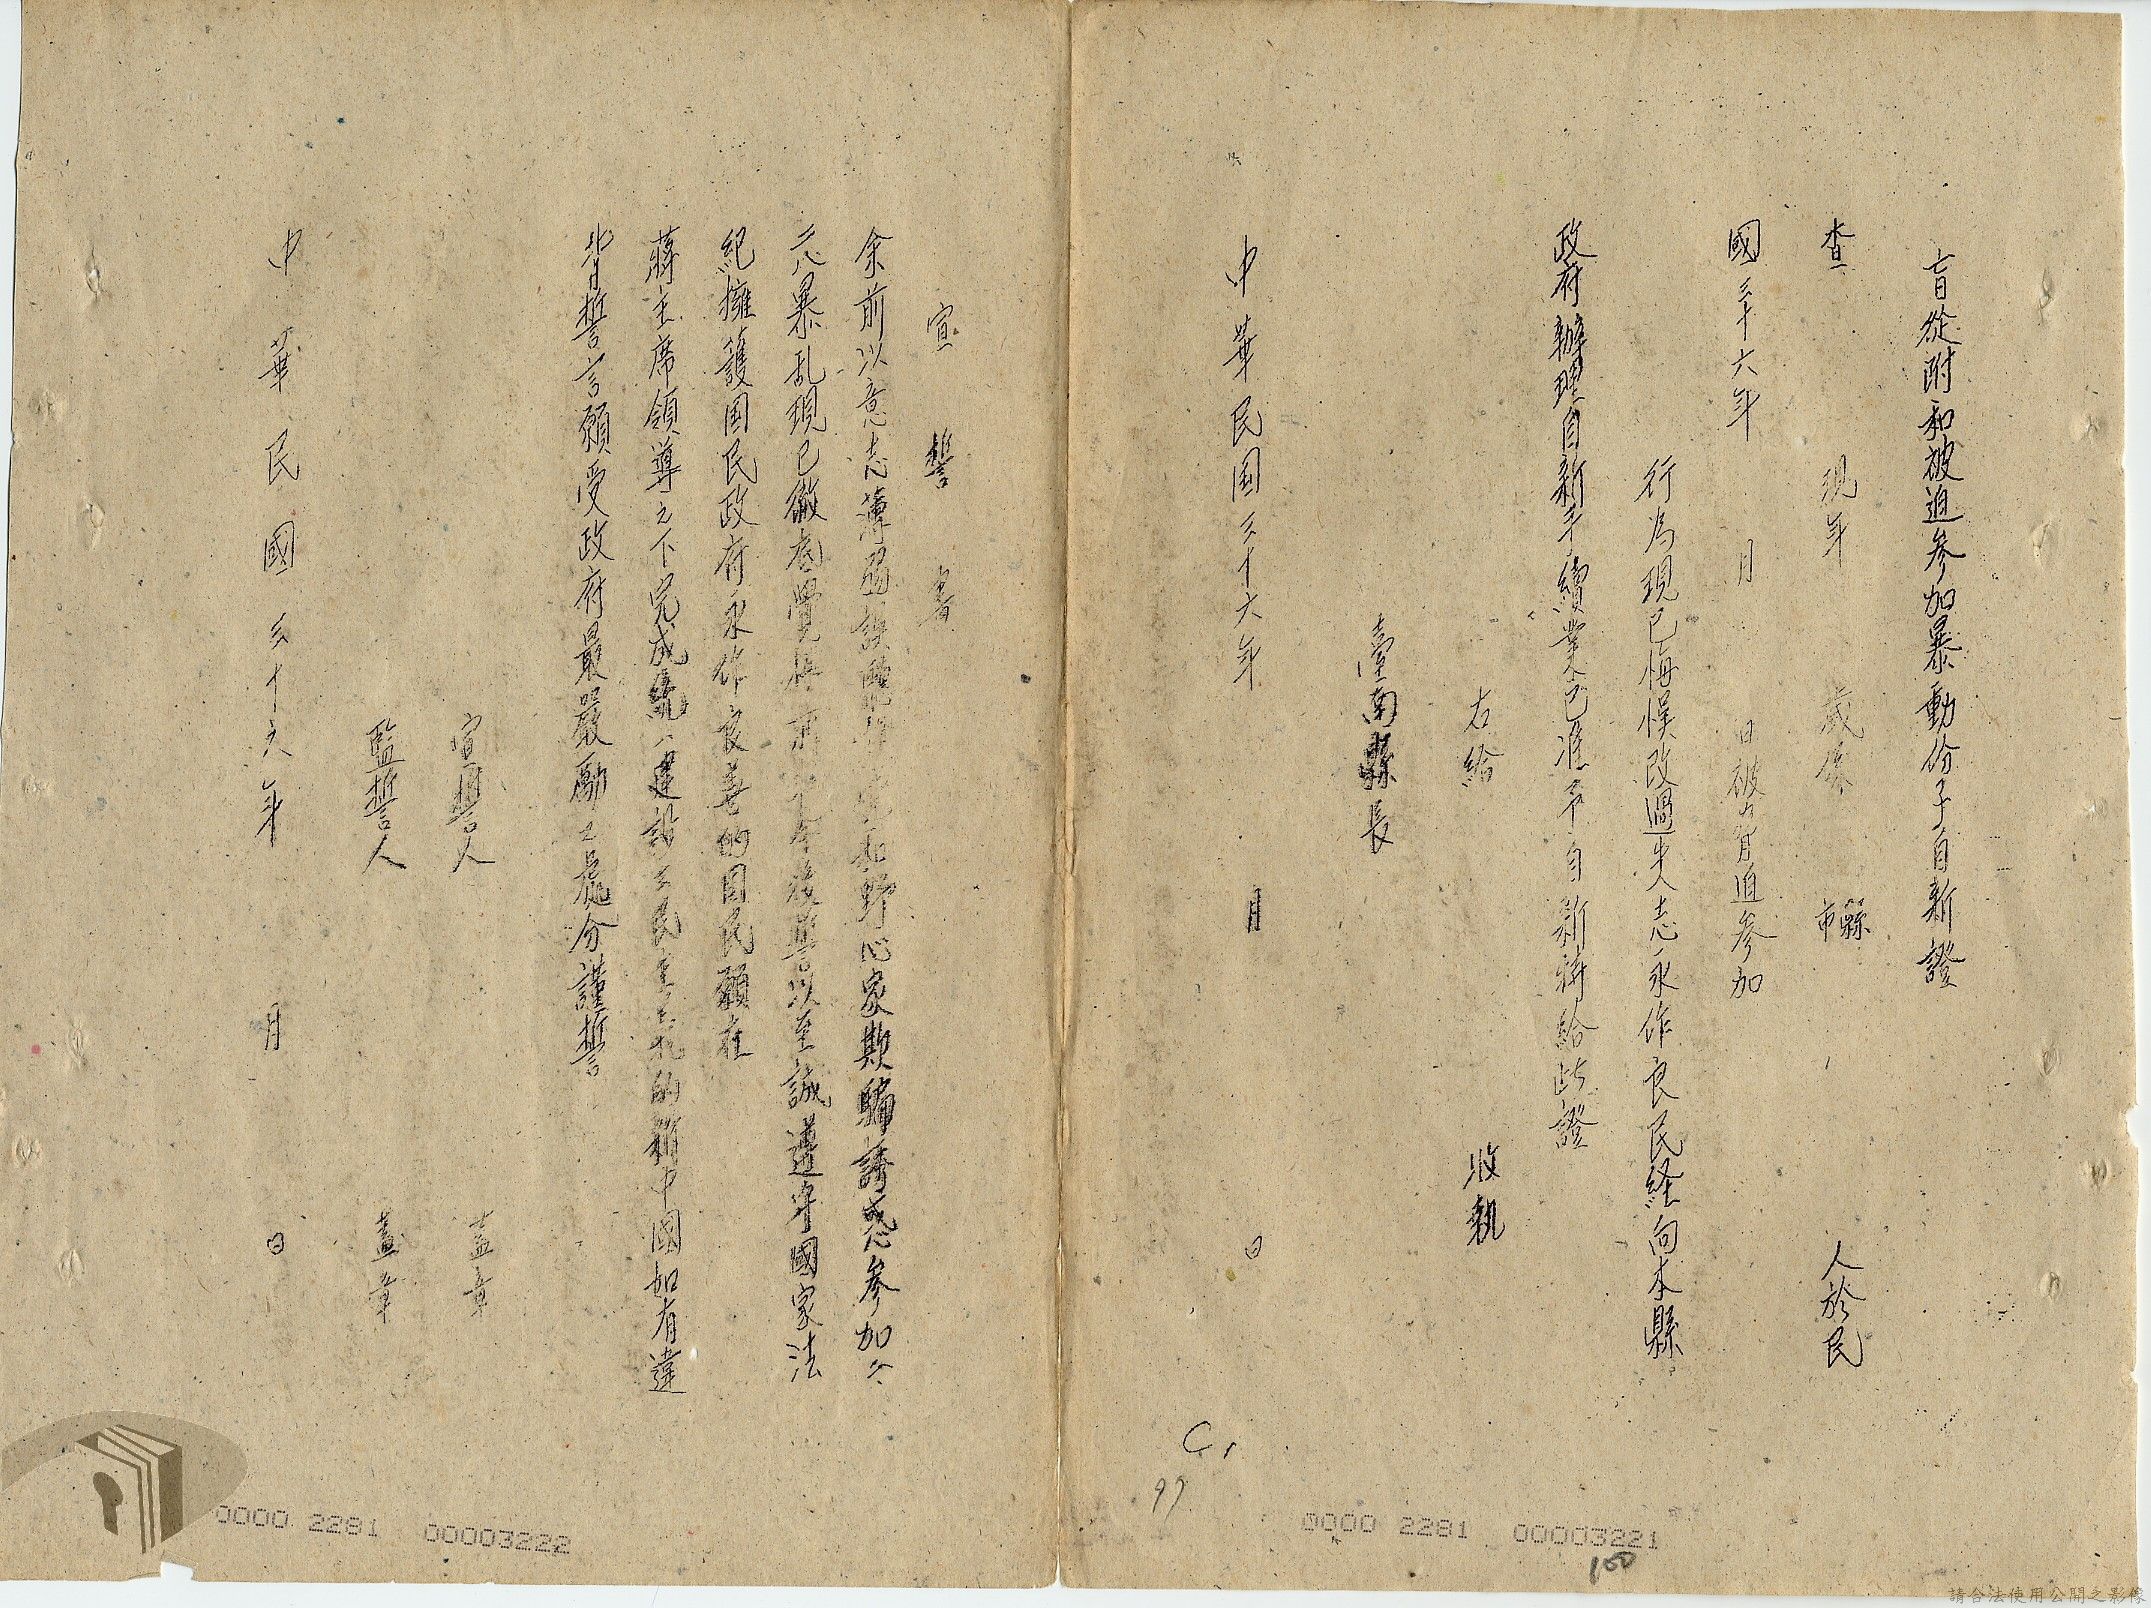 盲從附和被迫參加暴動份子自新證
查　現年　歲係　縣市　人於民
國三十六年　月　日被脅迫參加
行為現已悔悞改過失志永作良民経向本縣
政府辦理自新手續業已准予自新特給此證
右給　收執
臺南縣長
中華民国三十六年　月　日
宣誓書
余前以意志薄弱誤 野心家欺騙誘惑參加二
二八暴乱現已徹底覺悟 今後誓以至誠遵守國家法
紀擁護国民政府永作良善的国民願在
蔣主席領導之下完成統一建設三民主義的新中國如有違
背誓言願受政府最嚴勵之處分謹誓
宣誓人　盖章
監誓人　盖章
中華民國三十六年　月　日
C,
99
0000 2281 00003221
100
0000 2281 00003222
請合法使用公開之影像